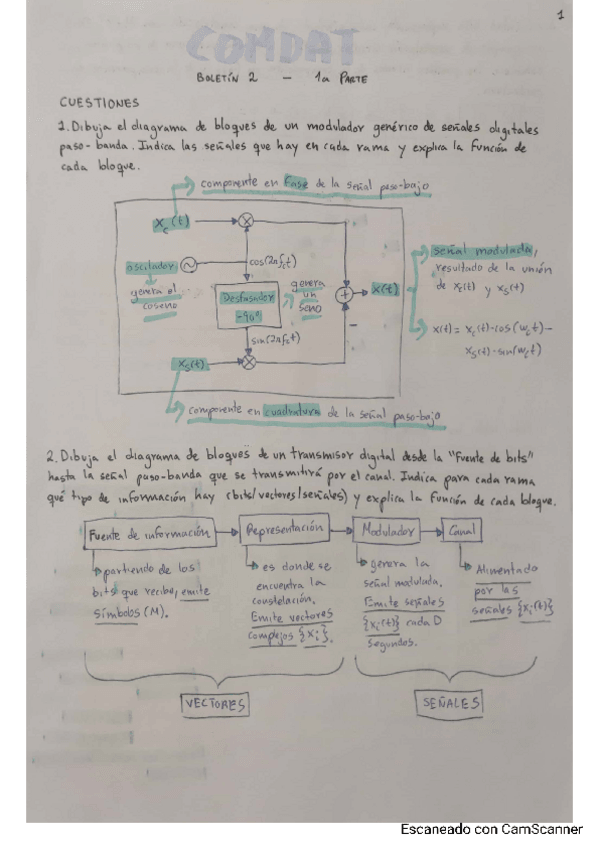 1
COMDAT
BOLETÍN 2 - 1a PARTE
CUESTIONES
1. Dibuja el diagrama de bloques de un modulador genérico de señales digitales
paso-banda. Indica las señales que hay en cada rama y explica la función de
cada bloque.
componente en fase de la señal paso-bajo
xc(t)
oscilador
genera el
coseno
cos(2πfct)
Desfasador
-90º
genera
un
seno
sin(2πfct)
xs(t)
+
-
x(t)
señal modulada,
resultado de la unión
de xc(t) y xs(t)
x(t) = xc(t)·cos(wct) -
xs(t)·sin(wct)
componente en cuadratura de la señal paso-bajo
2. Dibuja el diagrama de bloques de un transmisor digital desde la "Fuente de bits"
hasta la señal paso-banda que se transmitirá por el canal. Indica para cada rama
qué tipo de información hay (bits/vectores/señales) y explica la función de cada bloque.
Fuente de información
Representación
Modulador
Canal
partiendo de los
bits que recibe, emite
símbolos (M).
es donde se
encuentra la
constelación.
Emite vectores
complejos {xi}.
genera la
señal modulada.
Emite señales
{xi(t)} cada D
segundos.
Alimentado
por las
señales {xi(t)}
VECTORES
SEÑALES
Escaneado con CamScanner